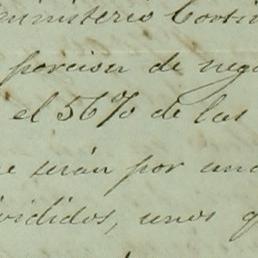 ministerio Corti
porcion de nego
el 56% de las
e serán por una
ividídos, unos q